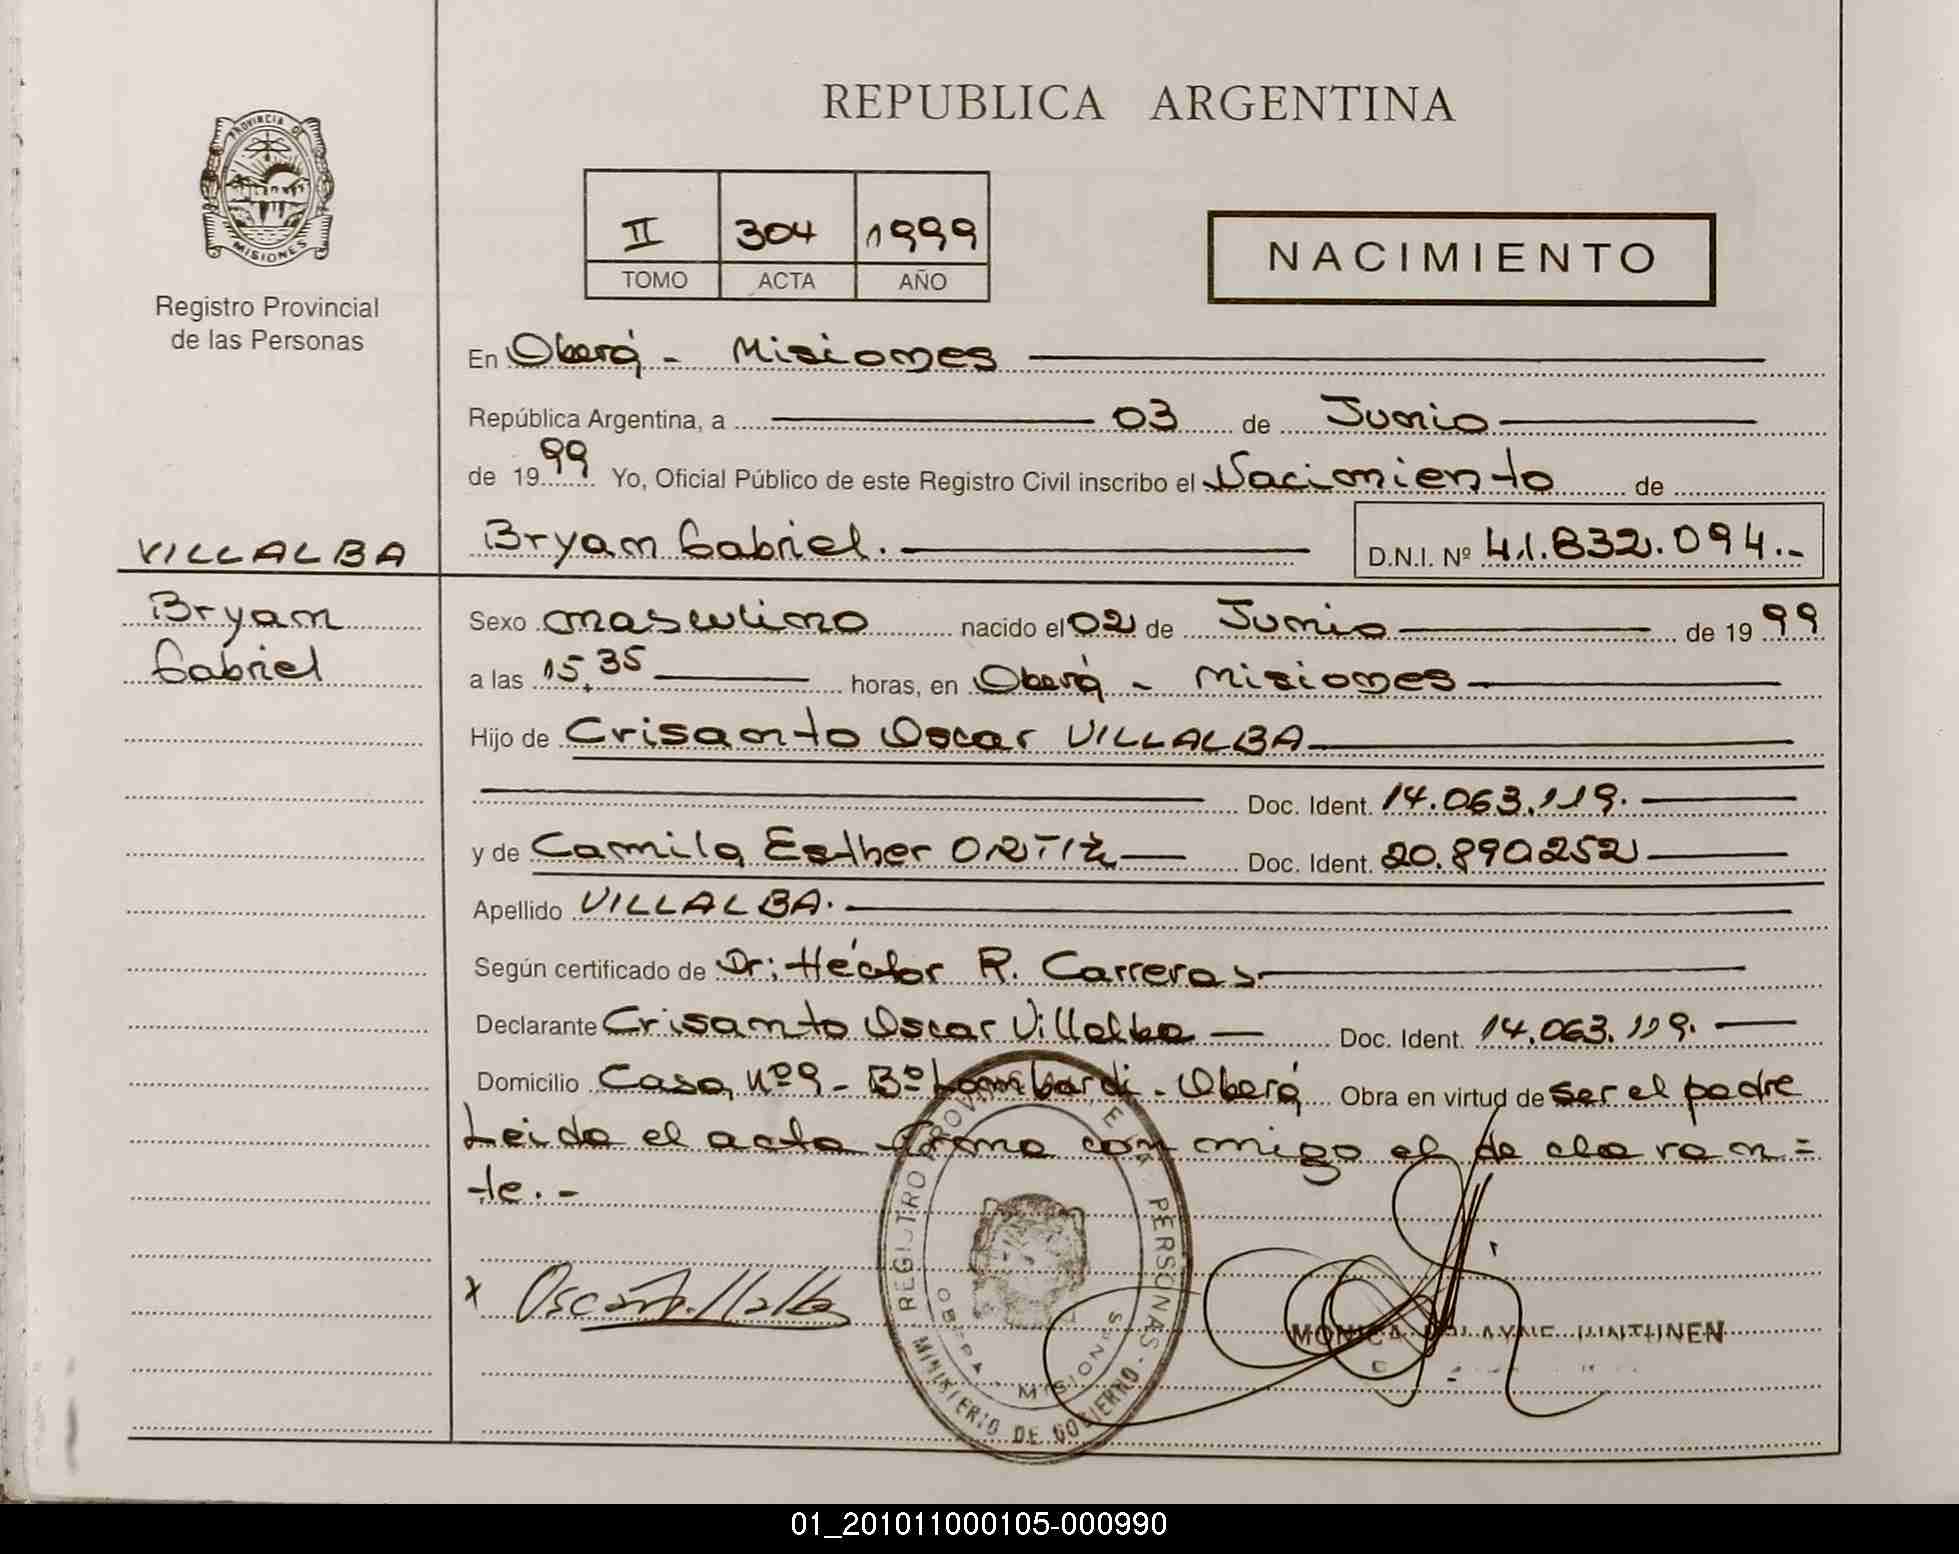 REPUBLICA ARGENTINA
PROVINCIA DE
MISIONES
Registro Provincial
de las Personas
II 304 1999
TOMO ACTA AÑO
NACIMIENTO
En Oberá - Misiones
República Argentina, a 03 de Junio
de 1999 Yo, Oficial Público de este Registro Civil inscribo el Nacimiento de
VILLALBA
Bryam Gabriel.
Bryam Gabriel. D.N.I. Nº 41.832.094.-
Sexo masculino nacido el 02 de Junio de 1999
a las 15,35 horas, en Oberá - Misiones
Hijo de Crisanto Oscar VILLALBA
Doc. Ident. 14.063.119.
y de Camila Esther ORTIZ Doc. Ident. 20.890252
Apellido VILLALBA.
Según certificado de Dr: Héctor R. Carreras
Declarante Crisanto Oscar Villalba Doc. Ident. 14.063.119.
Domicilio Casa Nº 9 - Bº Lombardi - Oberá Obra en virtud de ser el padre
Leida el acta firma con migo el declaran=
te.-
x Oscar Villalba
REGISTRO PROVINCIAL DE LAS PERSONAS - MINISTERIO DE GOBIERNO
OBERA - MISIONES
MONICA
01_201011000105-000990